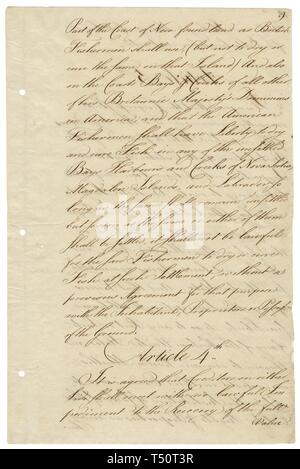 Part of the Coast of Newfoundland as British
Fishermen shall use (but not to dry or
cure the same on that Island) And also
on the Coasts Bays & Creeks of all other
of his Britannic Majesty's Dominions
in America, and that the American
Fishermen shall have Liberty to dry
and cure Fish in any of the unsettled
Bays Harbours and Creeks of Nova Scotia,
Magdalen Islands, and Labrador, so
long as the same shall remain unsettled
but so soon as the same or either of them
shall be settled, it shall not be lawful
for the said Fishermen to dry or cure
Fish at such Settlement, without a
previous Agreement for that purpose
with the Inhabitants, Proprietors or Possessors
of the Ground.
Article 4th
It is agreed that Creditors on either
Side shall meet with no lawful Im
pediment to the Recovery of the full
Value
alamy
Image ID: T50T3R
www.alamy.com